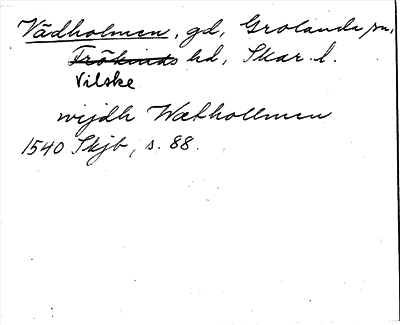 Vädholmen, gd, Grolanda sn,
Frökinds hd, Skar. l.
Vilske
wijdh Wæthollmen
1540 Skjb, s. 88.